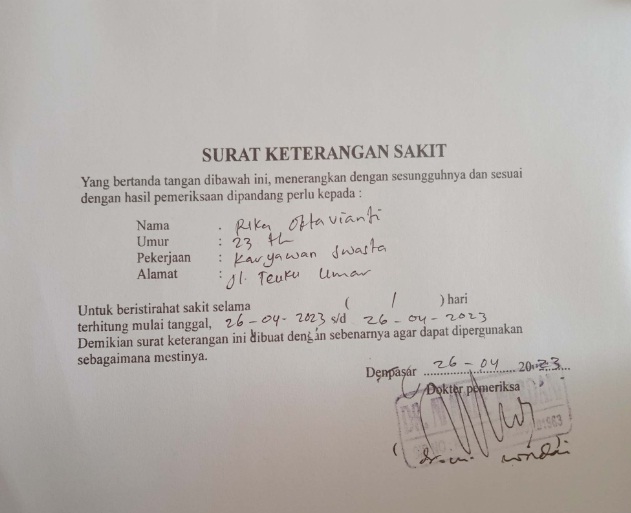 SURAT KETERANGAN SAKIT
Yang bertanda tangan dibawah ini, menerangkan dengan sesungguhnya dan sesuai
dengan hasil pemeriksaan dipandang perlu kepada :
Nama : Rika Oktavianti
Umur : 23 th
Pekerjaan : Karyawan swasta
Alamat : Jl. Teuku Umar
Untuk beristirahat sakit selama ( 1 ) hari
terhitung mulai tanggal, 26-04-2023 s/d 26-04-2023
Demikian surat keterangan ini dibuat dengan sebenarnya agar dapat dipergunakan
sebagaimana mestinya.
Denpasar 26-04 2023
Dokter pemeriksa
DR.